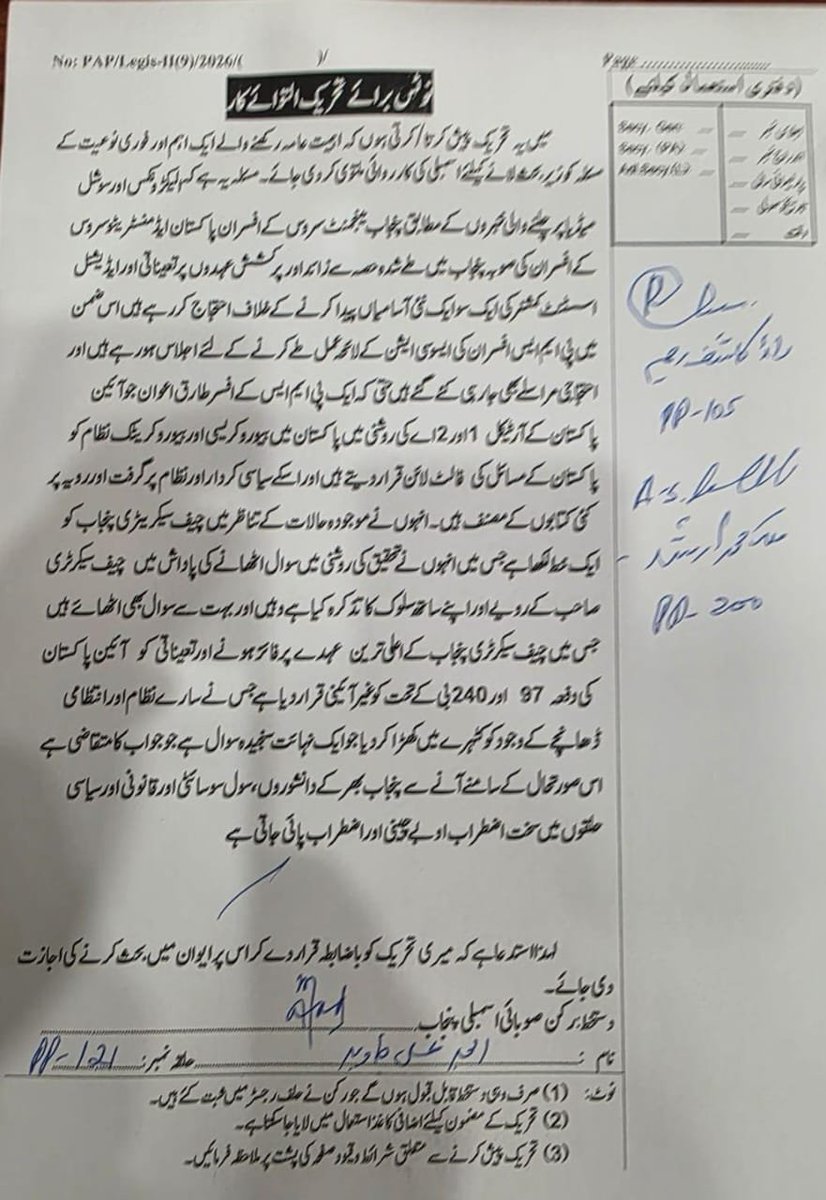 No: PAP/Legis-II(9)/2026/( )/
نوٹس برائے تحریک التوائے کار
میں یہ تحریک پیش کرتا/کرتی ہوں کہ اہمیت عامہ رکھنے والے ایک اہم اور فوری نوعیت کے
مسئلہ کو زیر بحث لانے کیلئے اسمبلی کی کارروائی ملتوی کر دی جائے۔ مسئلہ یہ ہے کہ الیکڑونکس اور سوشل
میڈیا پر چلنے والی خبروں کے مطابق پنجاب مینجمنٹ سروس کے افسران پاکستان ایڈمنسٹریٹو سروس
کے افسران کی صوبہ پنجاب میں طے شدہ حصہ سے زائد اور پرکشش عہدوں پر تعیناتی اور ایڈیشنل
اسسٹنٹ کمشنر کی ایک سو ایک نئی آسامیاں پیدا کرنے کے خلاف احتجاج کر رہے ہیں اس ضمن
میں پی ایم ایس افسران کی ایسوسی ایشن کے لائحہ عمل طے کرنے کے لئے اجلاس ہو رہے ہیں اور
احتجاجی مراسلے بھی جاری کئے گئے ہیں حتی کہ ایک پی ایم ایس کے افسر طارق اعوان جو آئین
پاکستان کے آرٹیکل 1 اور 2 اے کی روشنی میں پاکستان میں بیوروکریسی اور بیوروکریٹک نظام کو
پاکستان کے مسائل کی فالٹ لائن قرار دیتے ہیں اور اسکے سیاسی کردار اور نظام پر گرفت اور رویہ پر
کئی کتابوں کے مصنف ہیں۔ انہوں نے موجودہ حالات کے تناظر میں چیف سیکریٹری پنجاب کو
ایک خط لکھا ہے جس میں انہوں نے تحقیق کی روشنی میں سوال اٹھانے کی پاداش میں چیف سیکرٹری
صاحب کے رویے اور اپنے ساتھ سلوک کا تذکرہ کیا ہے وہیں اور بہت سے سوال بھی اٹھائے ہیں
جس میں چیف سیکرٹری پنجاب کے اعلی ترین عہدے پر فائز ہونے اور تعیناتی کو آئین پاکستان
کی دفعہ 97 اور 240 بی کے تحت کو غیر آئینی قرار دیا ہے جس نے سارے نظام اور انتظامی
ڈھانچے کے وجود کو کٹہرے میں کھڑا کر دیا جو ایک نہائت سنجیدہ سوال ہے جو جواب کا متقاضی ہے
اس صورتحال کے سامنے آنے سے پنجاب بھر کے دانشوروں، سول سوسائٹی اور قانونی اور سیاسی
حلقوں میں سخت اضطراب او بے چینی اور اضطراب پائی جاتی ہے
لہذا استدعا ہے کہ میری تحریک کو باضابطہ قرار دے کر اس پر ایوان میں بحث کرنے کی اجازت
دی جائے۔
دستخط رکن صوبائی اسمبلی پنجاب
نام : حلقہ نمبر: PP-121
نوٹ: (1) صرف وہی دستخط قابل قبول ہوں گے جو رکن نے حلف رجسٹر میں ثبت کئے ہیں۔
(2) تحریک کے مضمون کیلئے اضافی کاغذ استعمال میں لایا جا سکتا ہے۔
(3) تحریک پیش کرنے سے متعلق شرائط و قیود صفحہ کی پشت پر ملاحظہ فرمائیں۔
PP-105
PP-200